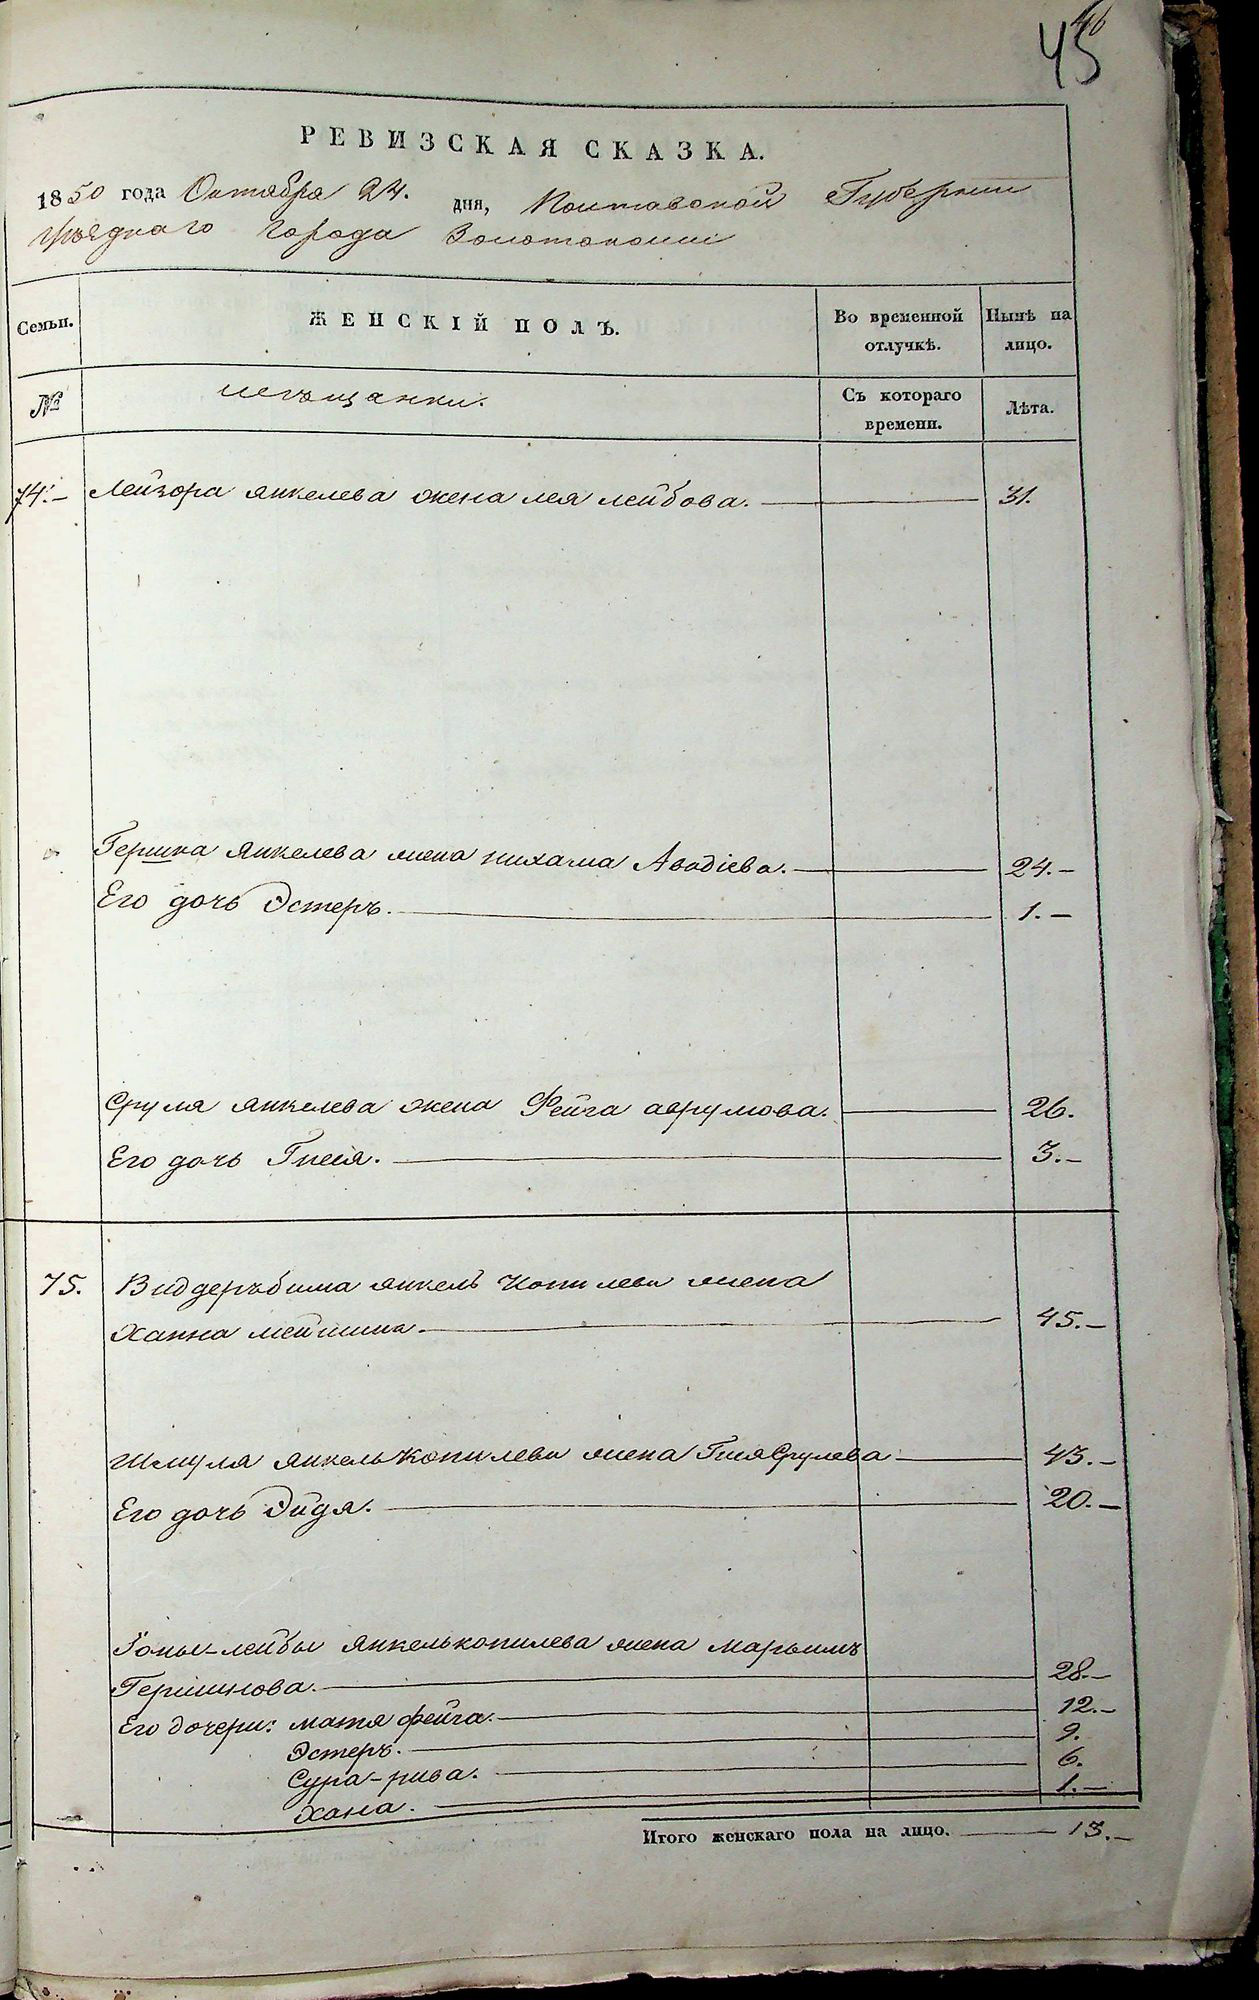 46
45
РЕВИЗСКАЯ СКАЗКА.
1850 года Октября 24. дня, Полтавской Губернии
уѣзднаго города Золотоноши
Семьи. ЖЕНСКІЙ ПОЛЪ. Во временной отлучкѣ. Нынѣ на лицо.
№ мѣщанки. Съ котораго времени. Лѣта.
74.– Лейзора Янкелева жена Лея Лейбова. 31.
Гершка Янкелева жена Нихама Авадіева. 24.–
Его дочь Эстеръ. 1.–
Сруля Янкелева жена Фейга Аврумова. 26.
Его дочь Гнеся. 3.–
75. Янкель Копилева жена
Ханна 45.–
Шмуля Янкель Копилева жена Гися Срулева 43.–
Его дочь Эйдя. 20.–
Лейбы Янкелькопилева жена Марьимъ
Гершкова. 28.–
Его дочери: Матя Фейга. 12.–
Эстеръ. 9.
Сура-рива. 6.
Хана. 1.–
Итого женскаго пола на лицо. 13.–